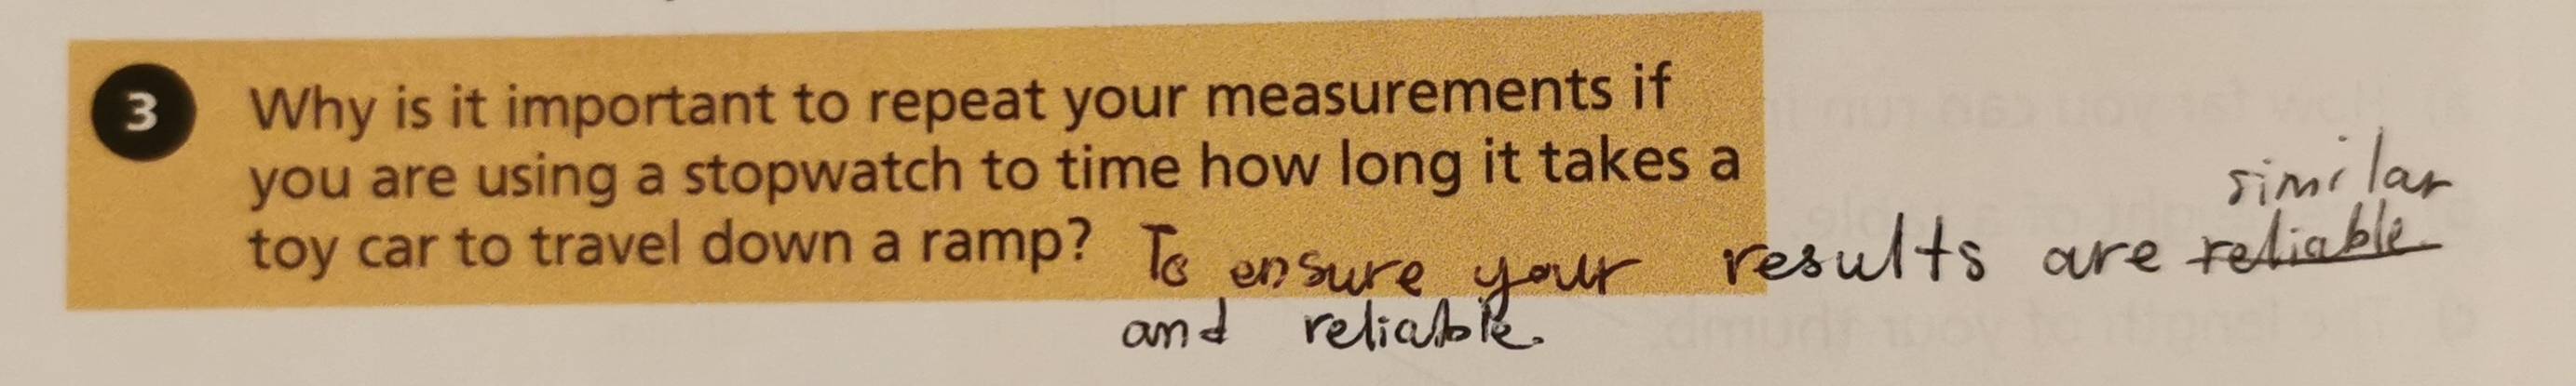 3 Why is it important to repeat your measurements if
you are using a stopwatch to time how long it takes a
toy car to travel down a ramp? To ensure your results are reliable similar
and reliable.